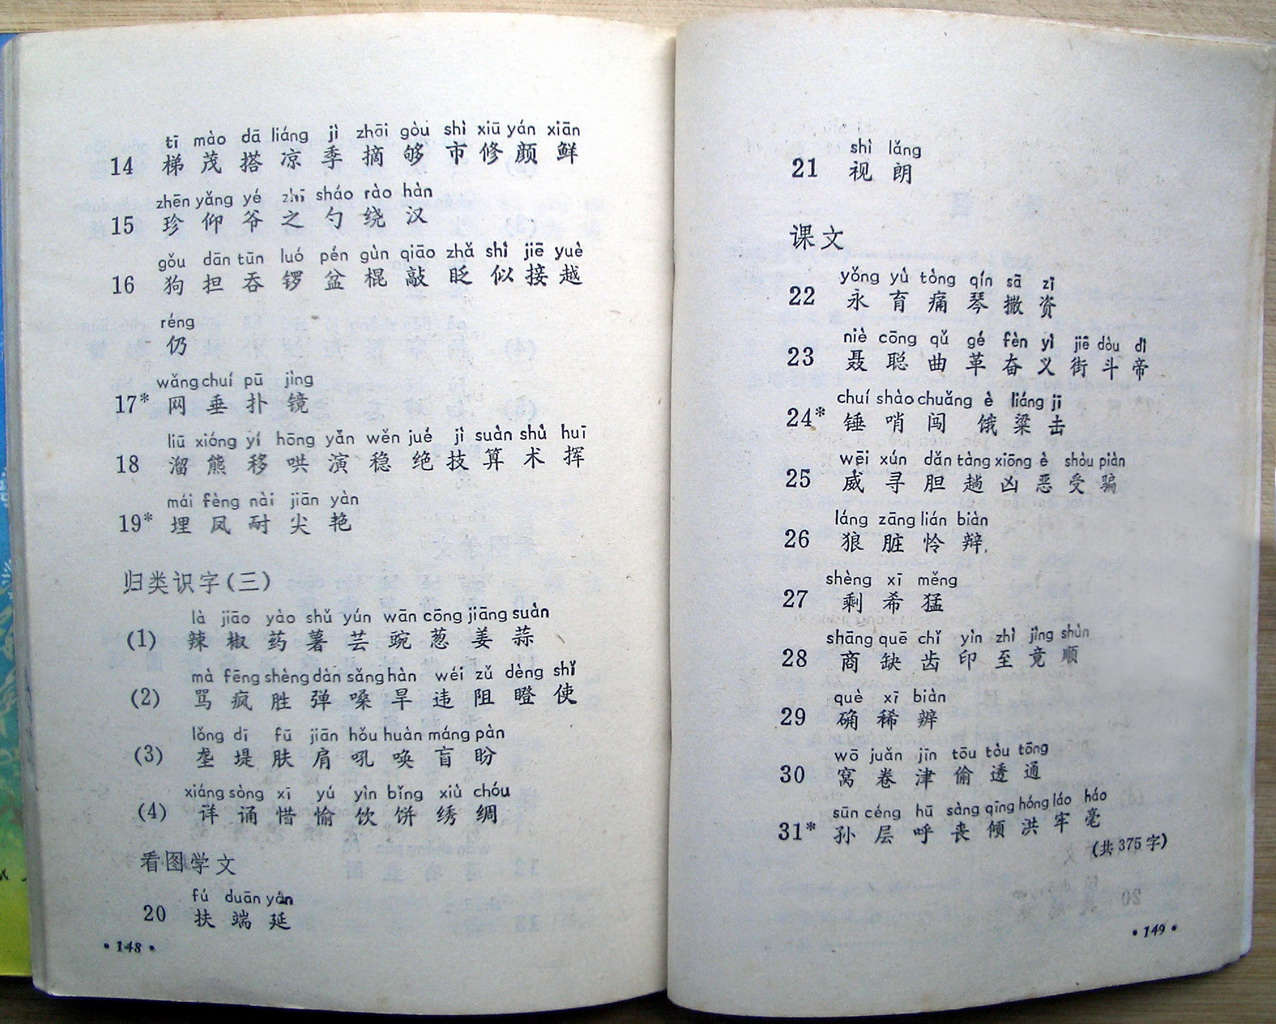 tī mào dā liáng jì zhāi gòu shì xiū yán xiān
14 梯 茂 搭 凉 季 摘 够 市 修 颜 鲜
zhēn yǎng yé zhī sháo rào hàn
15 珍 仰 爷 之 勺 绕 汉
gǒu dān tūn luó pén gùn qiāo zhǎ shì jiē yuè
16 狗 担 吞 锣 盆 棍 敲 眨 似 接 越
réng
仍
wǎng chuí pū jìng
17* 网 垂 扑 镜
liū xióng yí hōng yǎn wěn jué jì suàn shù huī
18 溜 熊 移 哄 演 稳 绝 技 算 术 挥
mái fèng nài jiān yàn
19* 埋 凤 耐 尖 艳
归类识字(三)
là jiāo yào shǔ yún wān cōng jiāng suàn
(1) 辣 椒 药 薯 芸 豌 葱 姜 蒜
mà fēng shèng dàn sǎng hàn wéi zǔ dèng shǐ
(2) 骂 疯 胜 弹 嗓 旱 违 阻 瞪 使
lǒng dī fū jiān hǒu huàn máng pàn
(3) 垄 堤 肤 肩 吼 唤 盲 盼
xiáng sòng xī yú yìn bǐng xiù chóu
(4) 详 诵 惜 愉 饮 饼 绣 绸
看图学文
fú duān yán
20 扶 端 延
•148•
shì lǎng
21 视 朗
课文
yǒng yù tòng qín sā zī
22 永 育 痛 琴 撒 资
niè cōng qǔ gé fèn yì jiē dòu dì
23 聂 聪 曲 革 奋 义 街 斗 帝
chuí shào chuǎng è liáng jī
24* 锤 哨 闯 饿 粱 击
wēi xún dǎn tàng xiōng è shòu piàn
25 威 寻 胆 趟 凶 恶 受 骗
láng zāng lián biàn
26 狼 脏 怜 辩
shèng xī měng
27 剩 希 猛
shāng quē chǐ yìn zhì jìng shùn
28 商 缺 齿 印 至 竟 顺
què xī biàn
29 确 稀 辨
wō juǎn jīn tōu tòu tōng
30 窝 卷 津 偷 透 通
sūn céng hū sàng qīng hóng láo háo
31* 孙 层 呼 丧 倾 洪 牢 毫
(共375字)
•149•